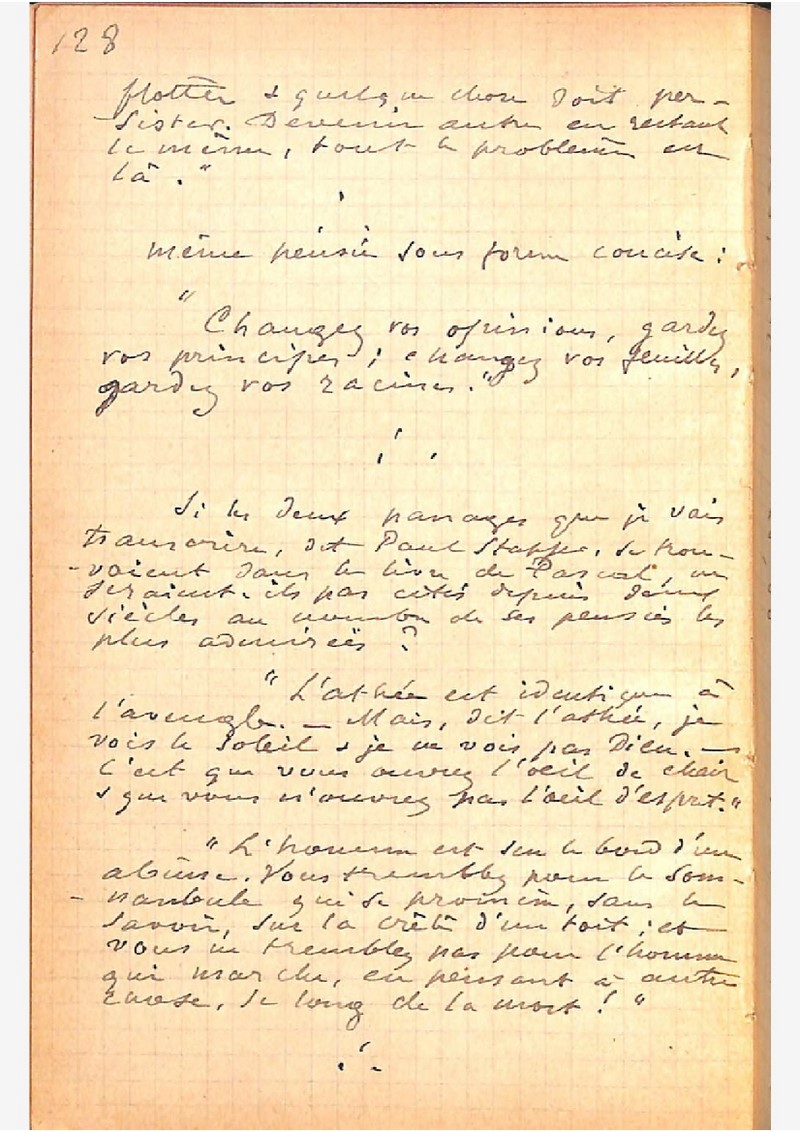 128
flotter & quelque chose doit per-
sister. Devenir autre en restant
le même, tout le problème est
là."
même pensée sous forme concise :
"
Changez vos opinions, gardez
vos principes ; changez vos feuilles,
gardez vos racines."
Si les deux passages que je vais
transcrire, dit Paul Stapfer, se trou-
-vaient dans le livre de Pascal, ne
seraient-ils pas cités depuis deux
siècles au nombre de ses pensées les
plus admirées ?
"L'athée est identique à
l'aveugle. — Mais, dit l'athée, je
vois le soleil & je ne vois pas Dieu. —
C'est que vous ouvrez l'oeil de chair
& que vous n'ouvrez pas l'oeil d'esprit."
"L'homme est sur le bord d'un
abîme. Vous tremblez pour le som-
-nambule qui se promène, sans le
savoir, sur la crête d'un toit ; et
vous ne tremblez pas pour l'homme
qui marche, en pensant à autre
chose, le long de la mort ! "